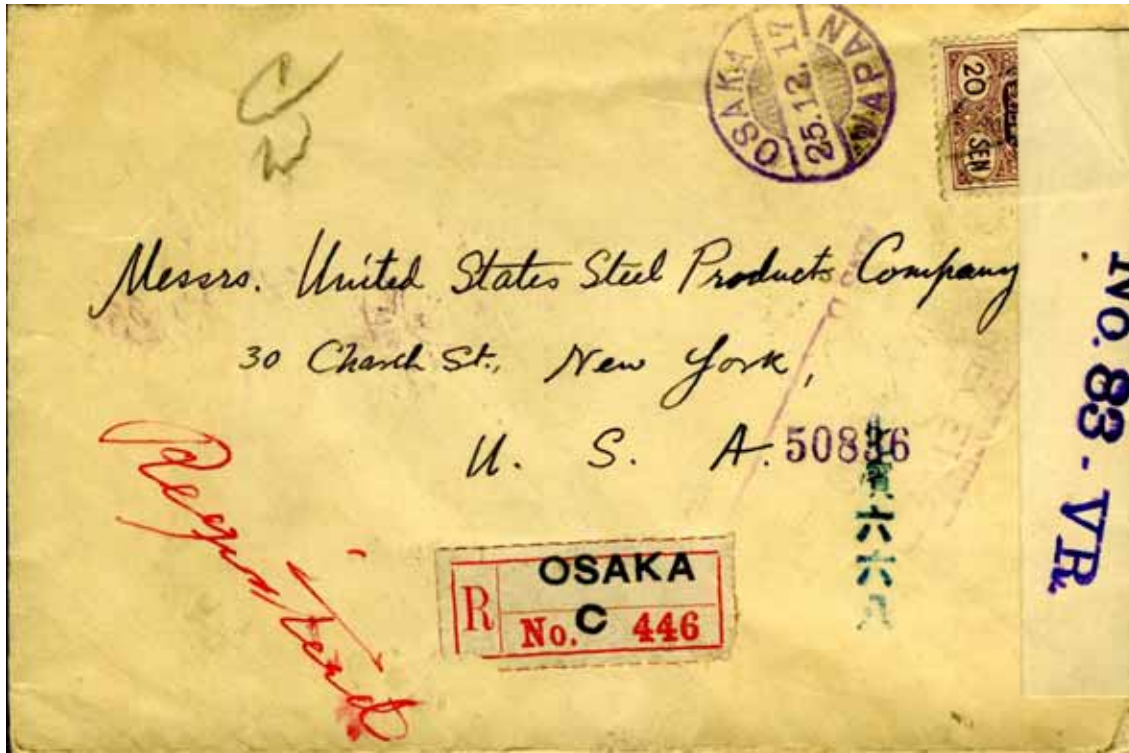 C
W
OSAKA
25.12.17
JAPAN
20 SEN
Messrs. United States Steel Products Company
30 Church St., New York,
U. S. A.
50836
濱六六八
No. 83 - VR.
Registered
R
OSAKA
No. C 446